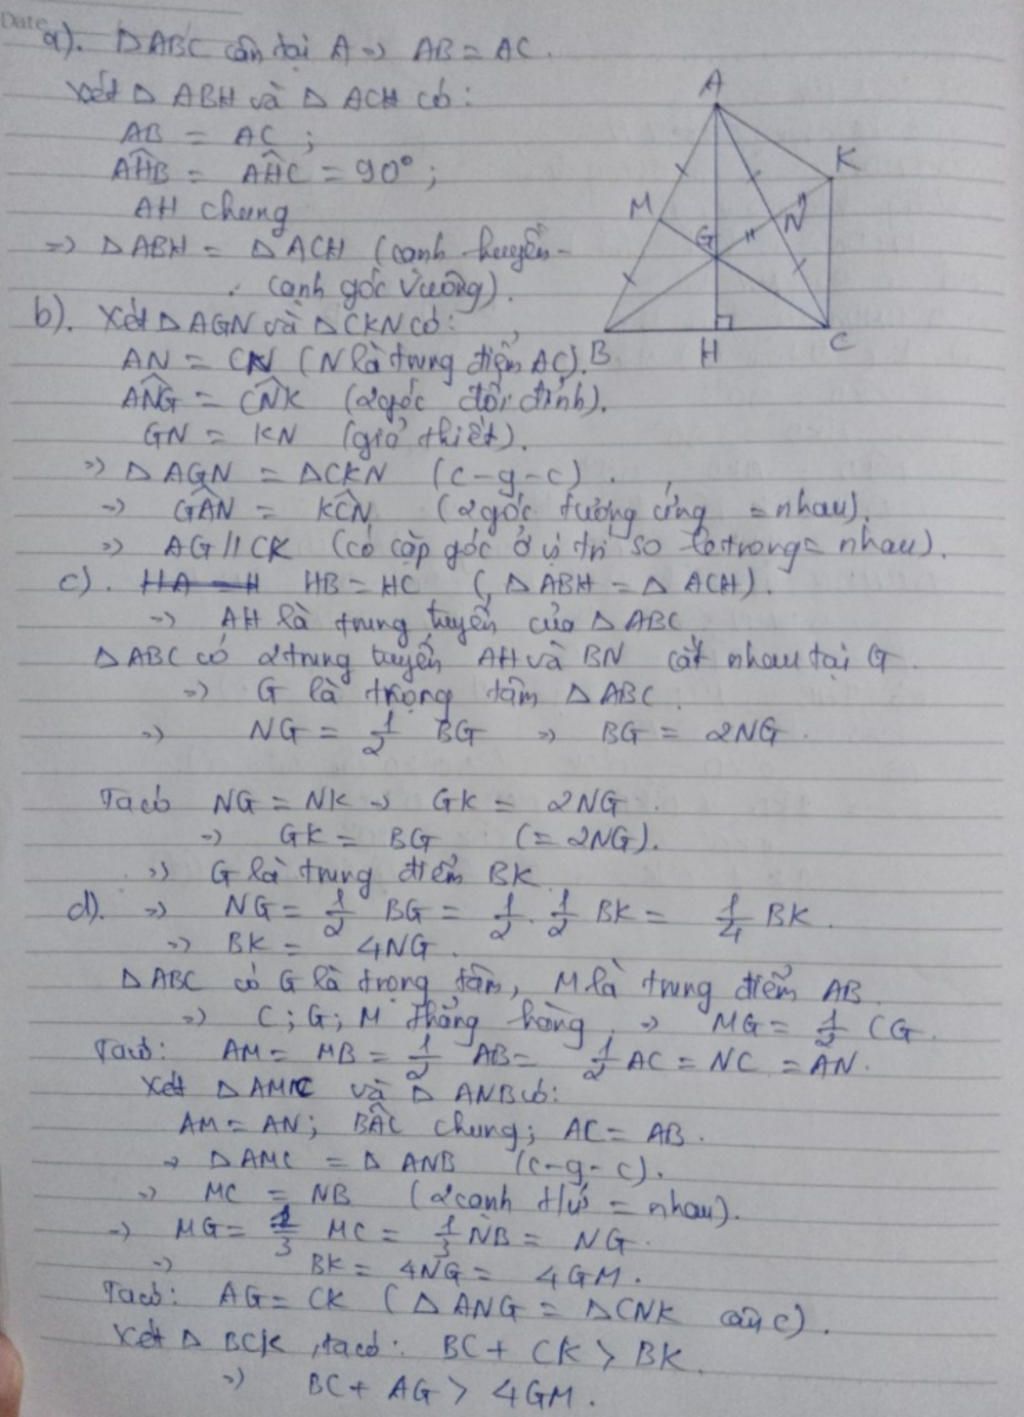 Date
a). ΔABC cân tại A => AB = AC.
Xét Δ ABH và Δ ACH có:
AB = AC ;
AHB = AHC = 90° ;
AH chung
=> Δ ABH = Δ ACH (cạnh huyền -
cạnh góc vuông).
b). Xét Δ AGN và Δ CKN có:
AN = CN (N là trung điểm AC).
ANG = CNK (2 góc đối đỉnh).
GN = KN (giả thiết).
=> Δ AGN = Δ CKN (c-g-c).
=> GAN = KCN (2 góc tương ứng = nhau).
=> AG // CK (có cặp góc ở vị trí so le trong = nhau).
c). HA = H HB = HC (Δ ABH = Δ ACH).
=> AH là trung tuyến của Δ ABC
Δ ABC có 2 trung tuyến AH và BN cắt nhau tại G.
=> G là trọng tâm Δ ABC.
=> NG = 1/2 BG => BG = 2NG.
Ta có NG = NK => GK = 2NG.
=> GK = BG (= 2NG).
=> G là trung điểm BK
d). => NG = 1/2 BG = 1/2 . 1/2 BK = 1/4 BK.
=> BK = 4NG.
Δ ABC có G là trọng tâm, M là trung điểm AB
=> C; G; M thẳng hàng => MG = 1/2 CG.
Ta có: AM = MB = 1/2 AB = 1/2 AC = NC = AN.
Xét Δ AMC và Δ ANB có:
AM = AN; BAC chung; AC = AB.
=> Δ AMC = Δ ANB (c-g-c).
=> MC = NB (2 cạnh t/ứ = nhau).
=> MG = 1/3 MC = 1/3 NB = NG.
=> BK = 4NG = 4GM.
Ta có: AG = CK (Δ ANG = Δ CNK câu c).
Xét Δ BCK, ta có: BC + CK > BK.
=> BC + AG > 4GM.
A
K
M
N
G
B
H
C